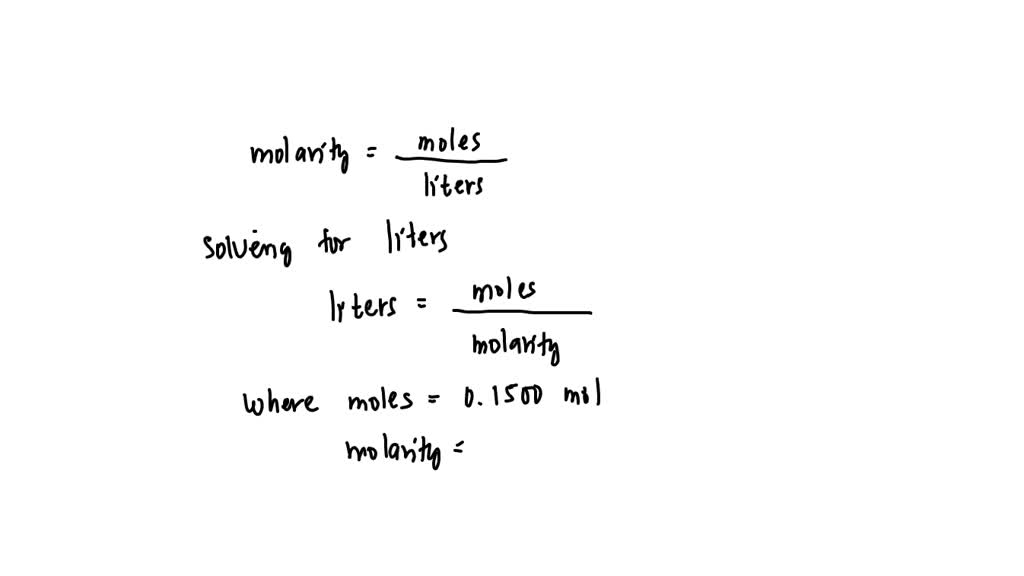 molarity = moles / liters
solving for liters
liters = moles / molarity
where moles = 0.1500 mol
molarity =